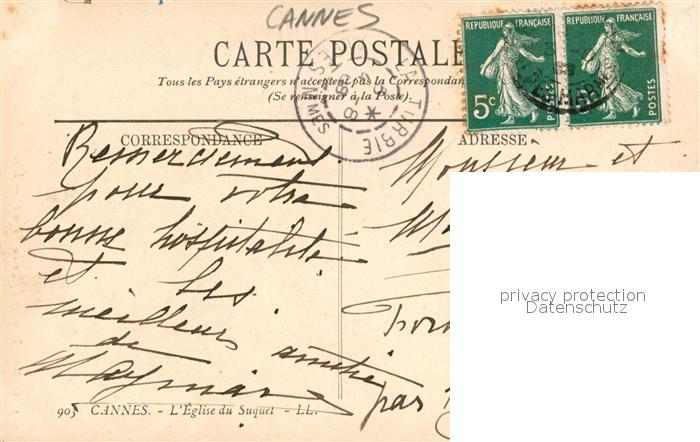 CANNES
CARTE POSTALE
Tous les Pays étrangers n'acceptent pas la Correspondan
(Se renseigner à la Poste).
REPUBLIQUE FRANÇAISE
5c
REPUBLIQUE FRANÇAISE
POSTES
LA TURBIE
CORRESPONDANCE
ADRESSE
Remerciements
pour votre
bonne hospitalité
et les
meilleurs amitiés
de
Monsieur et
pas
905 CANNES. - L'Église du Suquet - LL.
privacy protection
Datenschutz